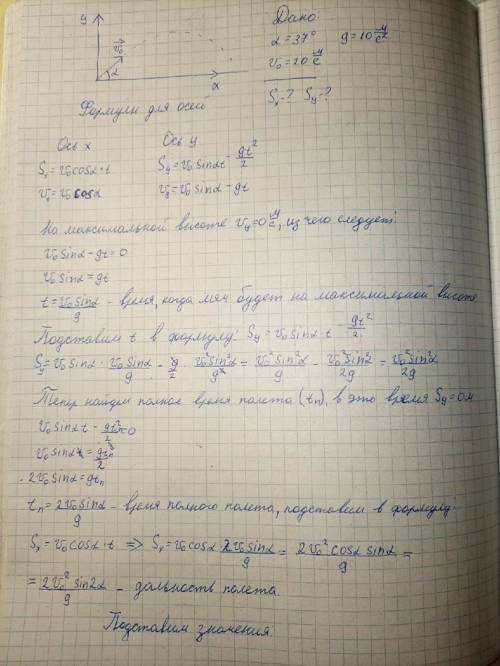 y
v₀
α
x
Дано:
α = 37° g = 10 м/с²
v₀ = 20 м/с
Sₓ - ? Sy - ?
Формулы для осей
Ось x Ось y
Sₓ = v₀cosα·t Sy = v₀sinαt - gt²/2
vₓ = v₀cosα vy = v₀sinα - gt
На максимальной высоте vy = 0 м/с, из чего следует:
v₀sinα - gt = 0
v₀sinα = gt
t = v₀sinα/g - время, когда мяч будет на максимальной высоте
Подставим t в формулу: Sy = v₀sinα·t - gt²/2
Sy = v₀sinα · v₀sinα/g - g/2 · v₀²sin²α/g² = v₀²sin²α/g - v₀²sin²α/2g = v₀²sin²α/2g
Тепер найдём полное время полета (tп), в это время Sy = 0м
v₀sinαt - gt²/2 = 0
v₀sinα = gtп/2
2v₀sinα = gtп
tп = 2v₀sinα/g - время полного полета, подставим в формулу:
Sₓ = v₀cosα·t => Sₓ = v₀cosα · 2v₀sinα/g = 2v₀²cosα sinα/g =
= 2v₀²sin2α/g - дальность полета
Подставим значения